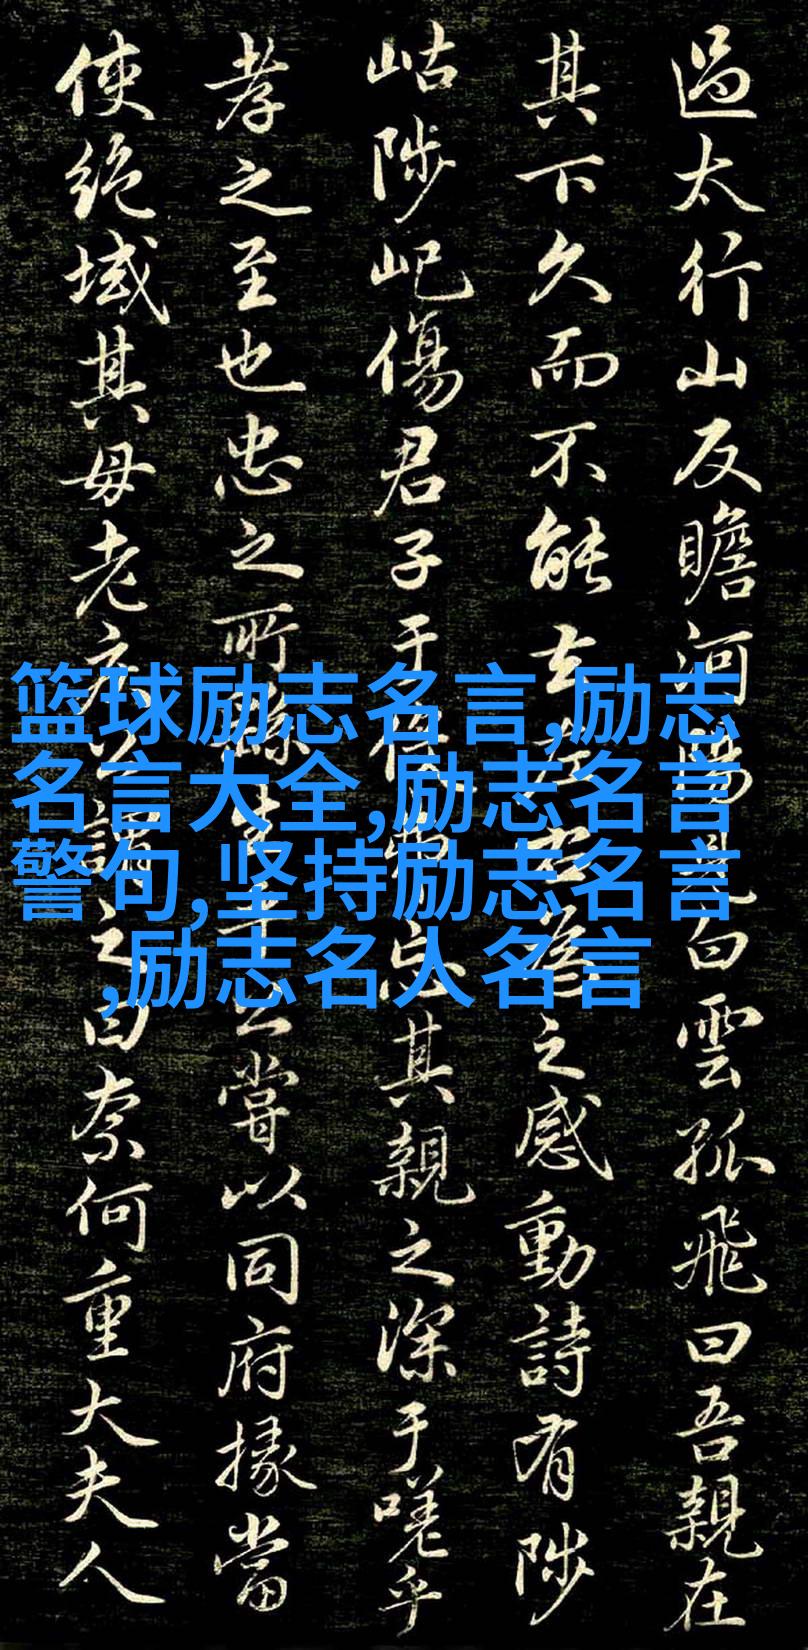 過太行山反瞻河陽見白雲孤飛曰吾親在
其下久而不能去左右為之感動詩有陟
岵陟屺傷君子于役忘其親之深于嗟乎
孝之至也忠之所繇生乎公嘗以同府掾當
使絕域其母老疾公謂之曰奈何重大夫人
篮球励志名言,励志
名言大全,励志名言
警句,坚持励志名言
,励志名人名言